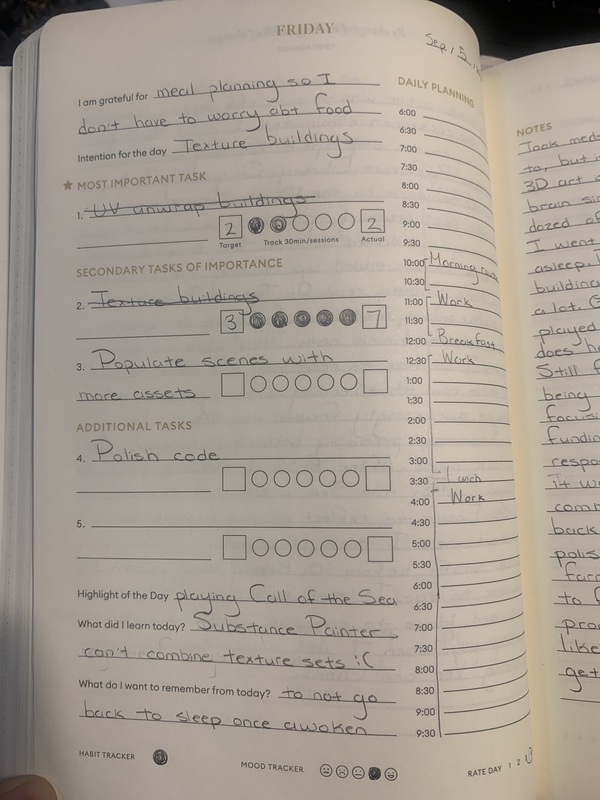 FRIDAY
Sep, 5,
I am grateful for meal planning so I
don't have to worry abt food
Intention for the day Texture buildings
★ MOST IMPORTANT TASK
1. UV unwrap buildings
2 2
Target Track 30min/sessions Actual
SECONDARY TASKS OF IMPORTANCE
2. Texture buildings
3 7
3. Populate scenes with
more assets
ADDITIONAL TASKS
4. Polish code
5.
Highlight of the Day playing Call of the Sea
What did I learn today? Substance Painter
can't combine texture sets :(
What do I want to remember from today? to not go
back to sleep once awoken
HABIT TRACKER
MOOD TRACKER
RATE DAY 1 2 3
DAILY PLANNING
6:00
6:30
7:00
7:30
8:00
8:30
9:00
9:30
10:00 Morning
10:30
11:00 Work
11:30
12:00 Breakfast
12:30 Work
1:00
1:30
2:00
2:30
3:00
3:30 Lunch
4:00 Work
4:30
5:00
5:30
6:00
6:30
7:00
7:30
8:00
8:30
9:00
9:30
NOTES
Took meds
to, but i
3D art
brain
dozed of
I went
asleep.
building
a lot.
played
does
Still
being
focusi
fundin
respo
it w
comm
back
polis
farr
to
pro
like
get